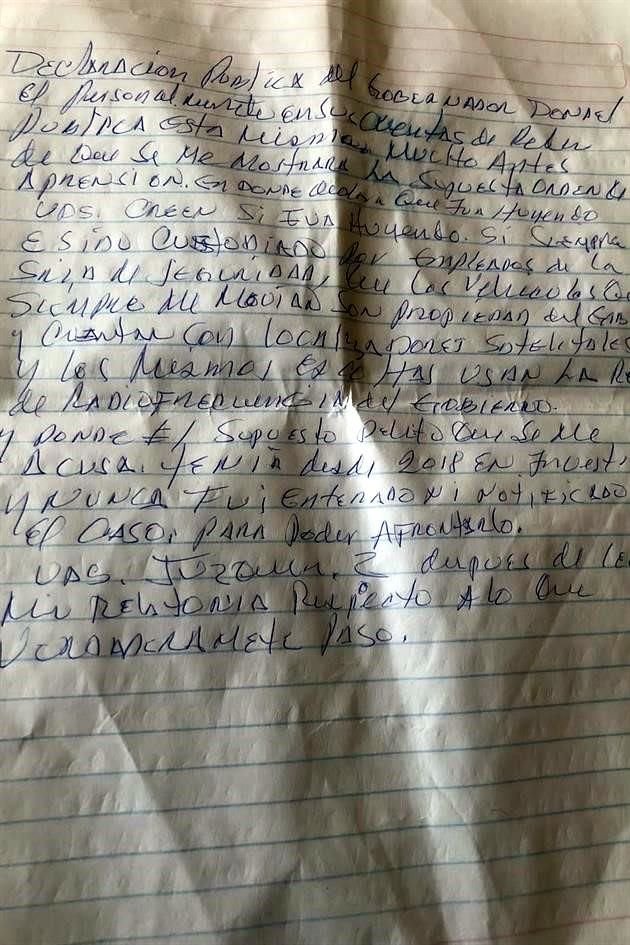 Declaracion Publica del Gobernador Donde
El Personalmente en Sus Cuentas de Redes
Publica Esta Misma Mucho Antes
de Que Se Me Mostrara La Supuesta Orden de
Aprension. En Donde Que Iva Huyendo
UDS. Creen Si Iva Huyendo. Si Siempre
E Sido Custodiado Por Empleados de la
de Seguridad, Que Los Vehiculos
Siempre Me Movian Son Propiedad del
y Cuentan Con Localizadores Satelitales
y Los Mismos Escoltas Usan La
de Radiofrecuencia del Gobierno.
y Donde El Supuesto Delito Que Se Me
Acusa. Tenia desde 2018 En
y Nunca Fui Enterado Ni Notificado
El Caso, Para Poder Afrontarlo.
UDS. dupues de
Mi Relatoria Respecto A lo Que
Verdaderamete Paso.